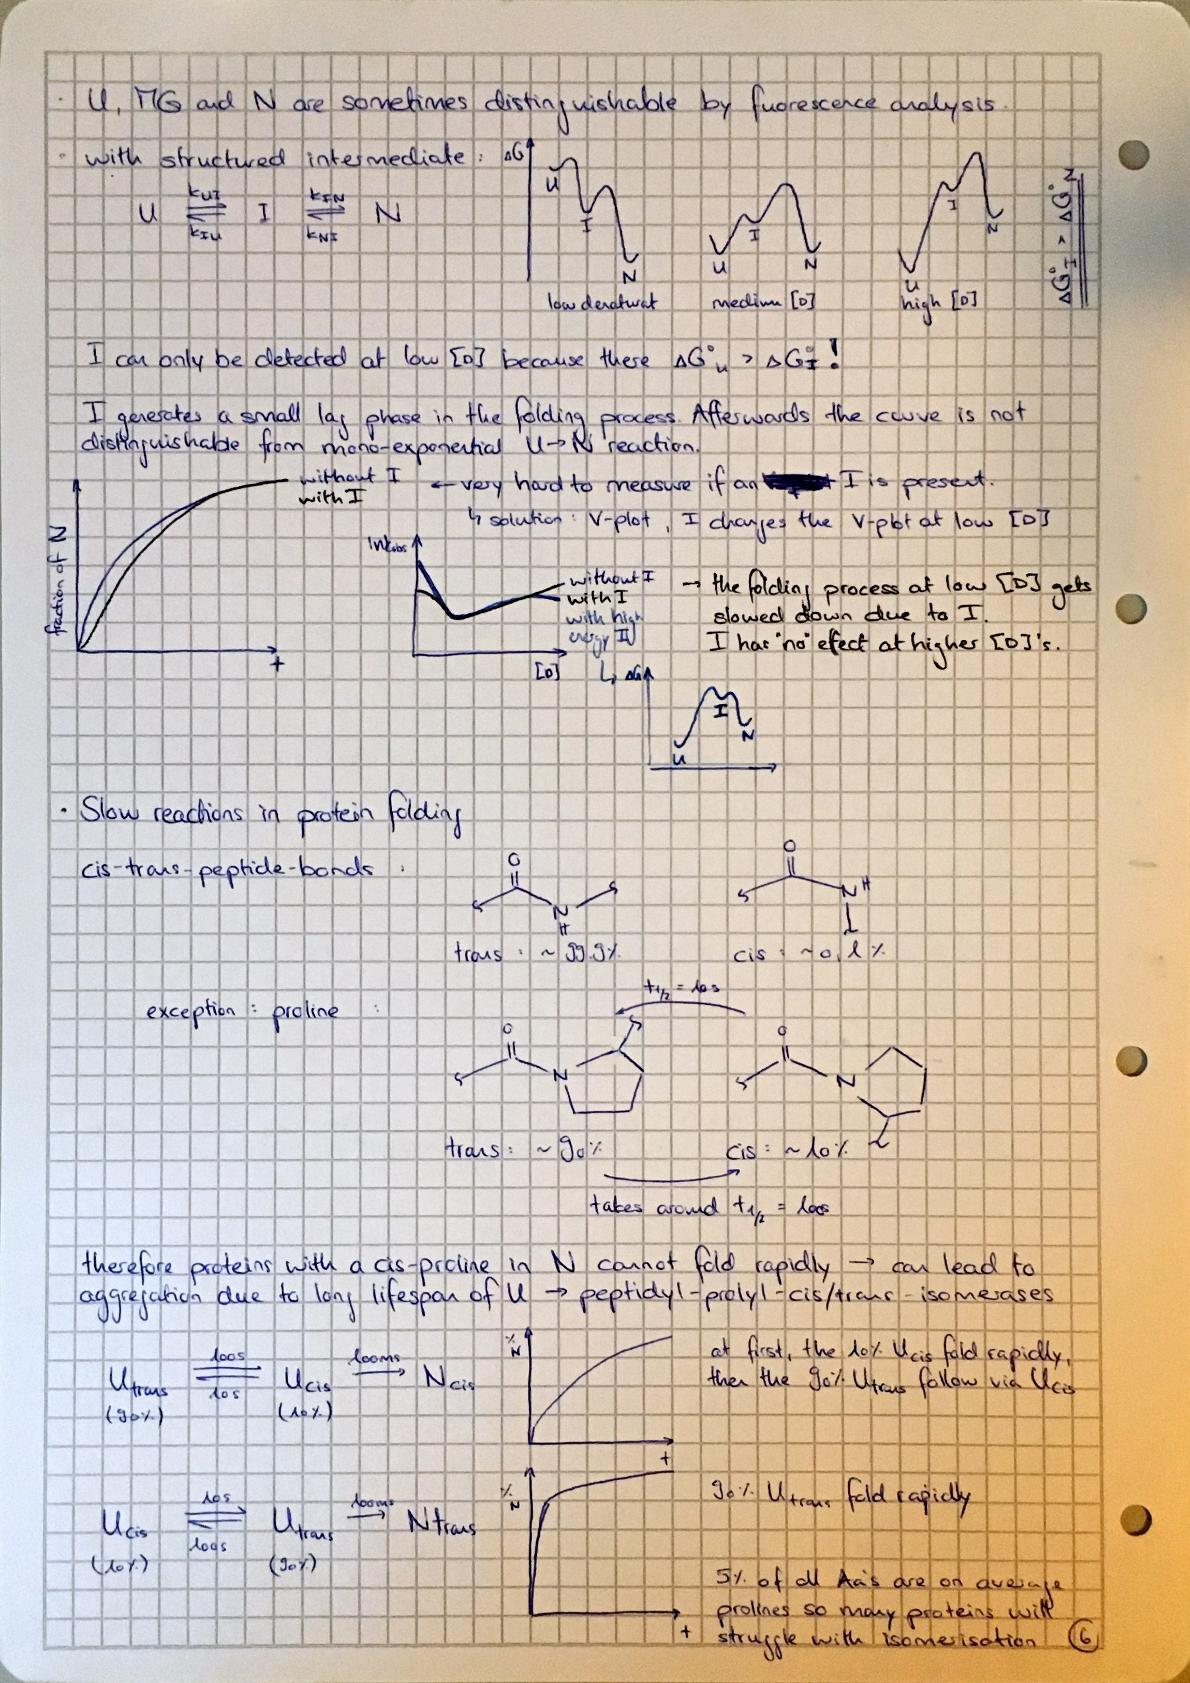 · U, MG and N are sometimes distinguishable by fuorescence analysis.
· with structured intermediate :
U ⇌ I ⇌ N
kUI kIN
kIU kNI
ΔG
U I N
low denaturat
U I N
medium [D]
U I N
high [D]
ΔG°I > ΔG°N
I can only be detected at low [D] because there ΔG°U > ΔG°I !
I generates a small lag phase in the folding process. Afterwards the curve is not
distinguishable from mono-exponential U→N reaction.
fraction of N
without I
with I
t
← very hard to measure if an I is present.
↳ solution : V-plot, I changes the V-plot at low [D]
lnkobs
without I
with I
with high
energy I
[D]
→ the folding process at low [D] gets
slowed down due to I.
I has "no" efect at higher [D]'s.
↳ ΔG
U I N
· Slow reactions in protein folding
cis-trans-peptide-bonds :
O
N
H
trans : ~ 99.9%
O
N H
cis : ~0,1%
exception : proline :
t1/2 = 10s
O
N
trans : ~90%
O
N
cis : ~10%
takes around t1/2 = 100s
therefore proteins with a cis-proline in N cannot fold rapidly → can lead to
aggregation due to long lifespan of U → peptidyl-prolyl-cis/trans-isomerases
Utrans ⇌ Ucis → Ncis
100s 100ms
10s
(90%) (10%)
% N
t
at first, the 10% Ucis fold rapidly,
then the 90% Utrans follow via Ucis
Ucis ⇌ Utrans → Ntrans
10s 100ms
100s
(10%) (90%)
% N
t
90% Utrans fold rapidly
5% of all Aa's are on average
prolines so many proteins will
struggle with isomerisation
6